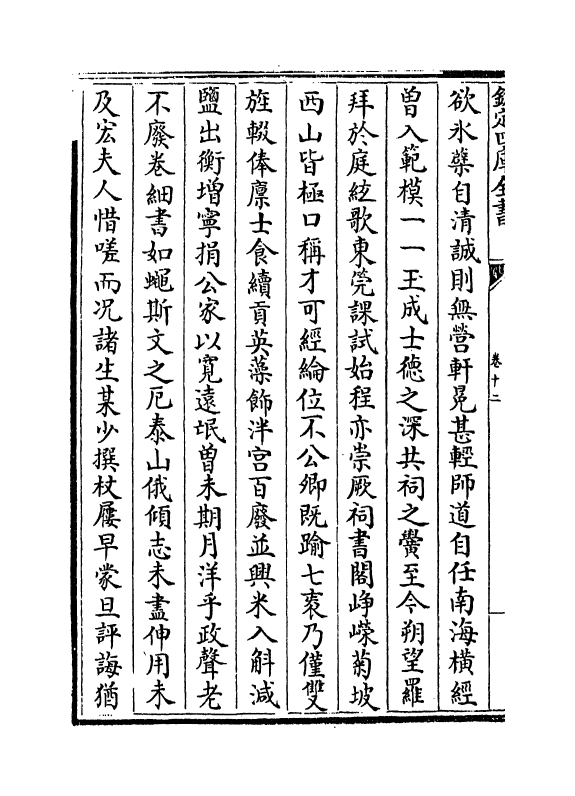 欽定四庫全書
卷十二
欲氷蘖自清誠則無營軒冕甚輕師道自任南海橫經
曽入範模一一玊成士德之深共祠之黌至今朔望羅
拜於庭絃歌東筦課試始程亦崇厥祠書閣崢嶸菊坡
西山皆極口稱才可經綸位不公卿既踰七袠乃僅雙
旌輟俸廪士食續貢英藻飾泮宫百廢並興米入斛減
鹽出衡增寧捐公家以寛遠氓曽未期月洋乎政聲老
不廢卷細書如蠅斯文之厄泰山俄傾志未盡伸用未
及宏夫人惜嗟而况諸生某少撰杖屨早蒙旦評誨猶